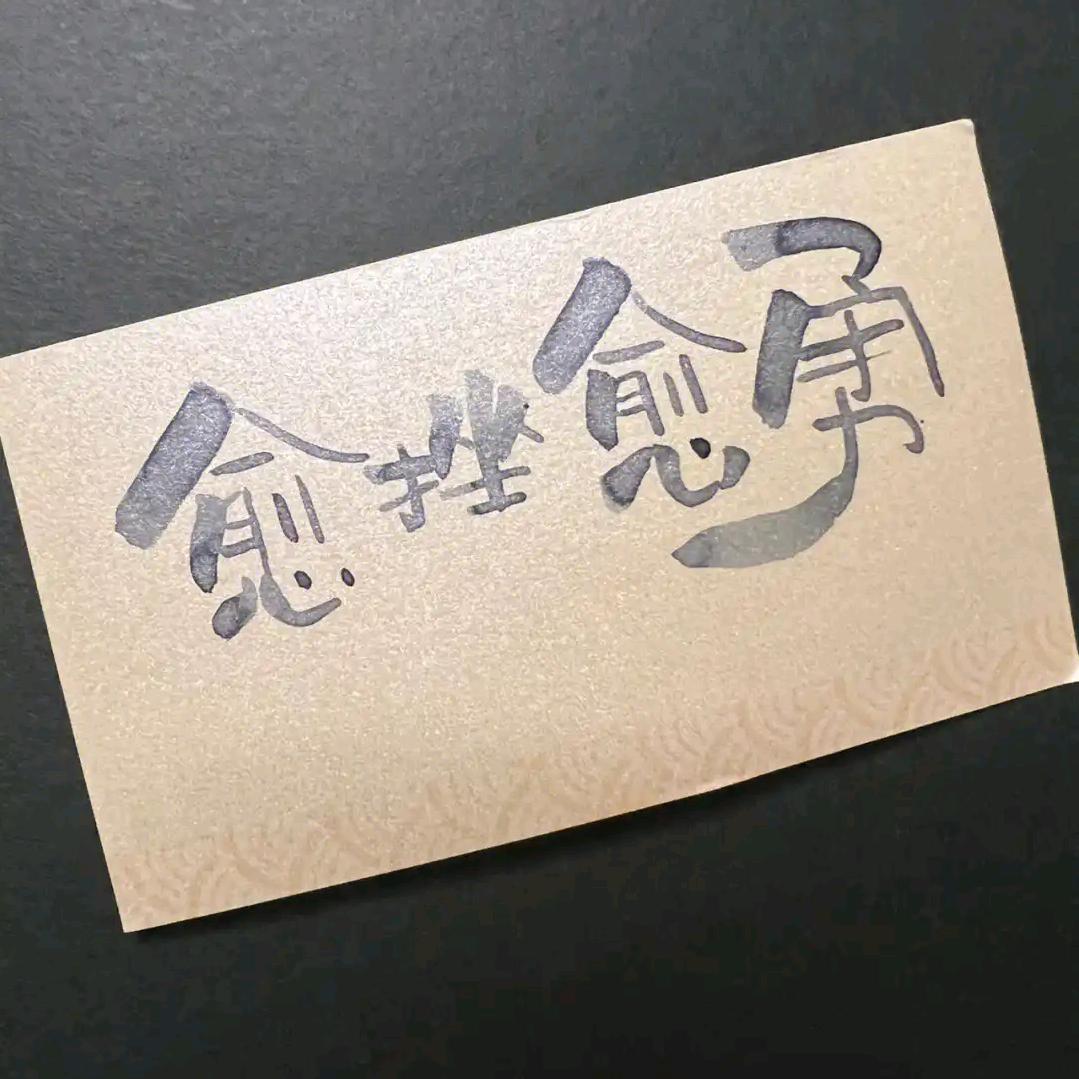 愈挫愈勇